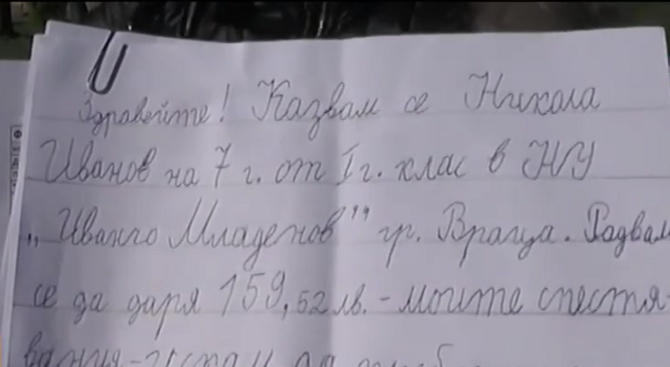 Здравейте! Казвам се Никола
Иванов на 7 г. от I г. клас в НУ
„Иванчо Младенов" гр. Враца. Радвам
се да даря 159,52 лв. - моите спестя-
вания -